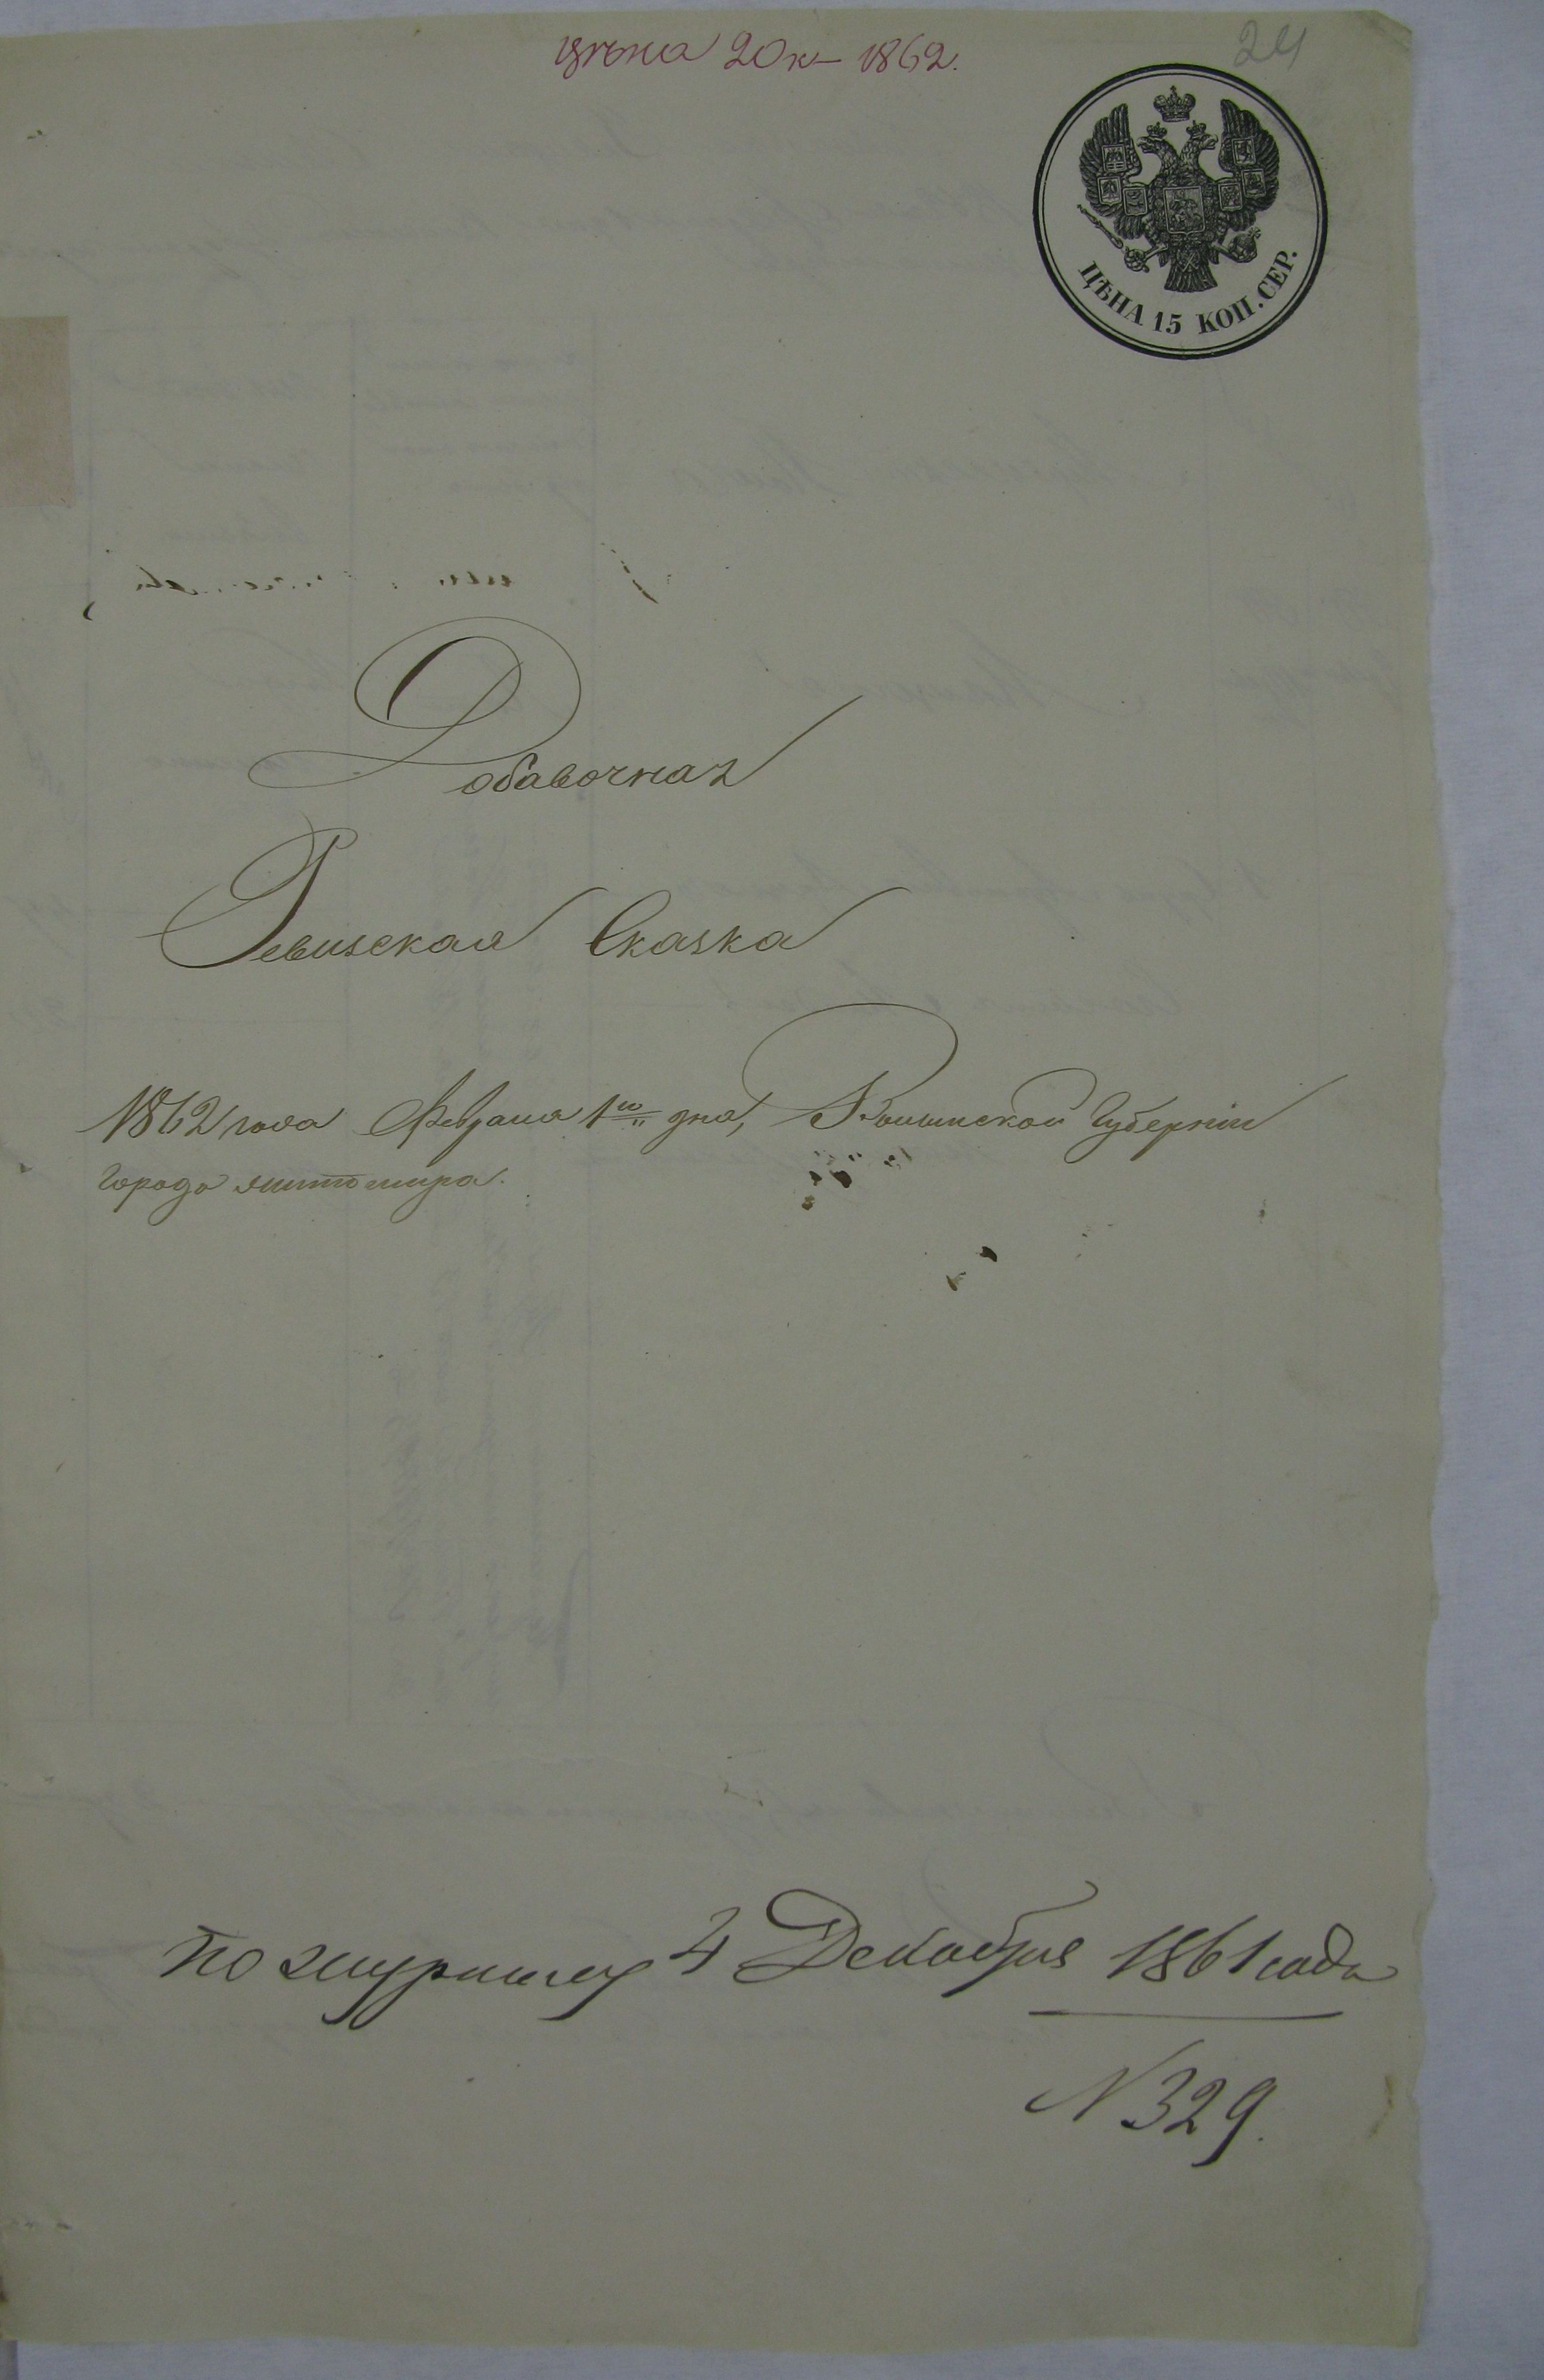 цѣна 20 к– 1862.
24
ЦѢНА 15 КОП. СЕР.
Добавочная
Ревизская Сказка
1862 года Февраля 1го дня, Волынской Губерніи
Города Житомира.
По журналу 4 Декабря 1861 года
N 329.